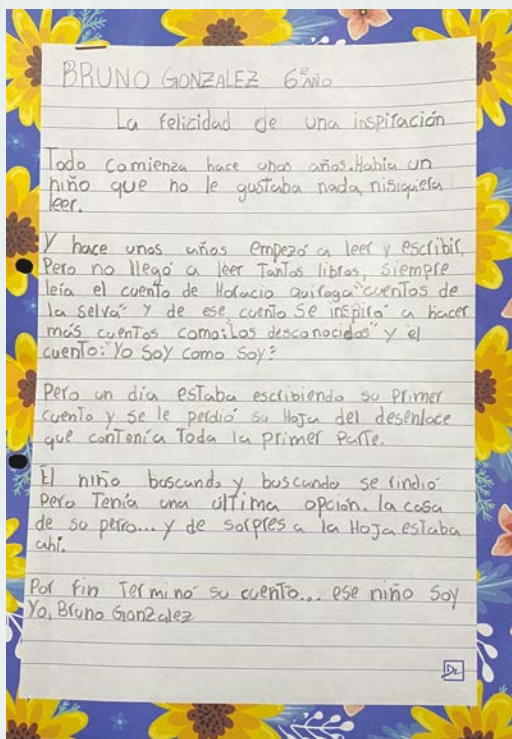 BRUNO GONZALEZ 6º AÑO
La felicidad de una inspiración
Todo comienza hace unos años. Habia un
niño que no le gustaba nada, nisiquiera
leer.
Y hace unos años empezó a leer y escribir,
Pero no llegó a leer Tantos libros, siempre
leía el cuento de Horacio quiroga "cuentos de
la selva" y de ese cuento se inspiró a hacer
más cuentos como: "Los desconocidos" y el
cuento: "Yo Soy como Soy".
Pero un día estaba escribiendo su Primer
cuento y se le perdió su Hoja del desenlace
que contenía Toda la primer Parte.
El niño buscando y buscando se rindió
Pero Tenía una última opción. la casa
de su perro... y de sorpres a la Hoja estaba
ahí.
Por fin Terminó su cuento... ese niño Soy
Yo, Bruno Gonzalez